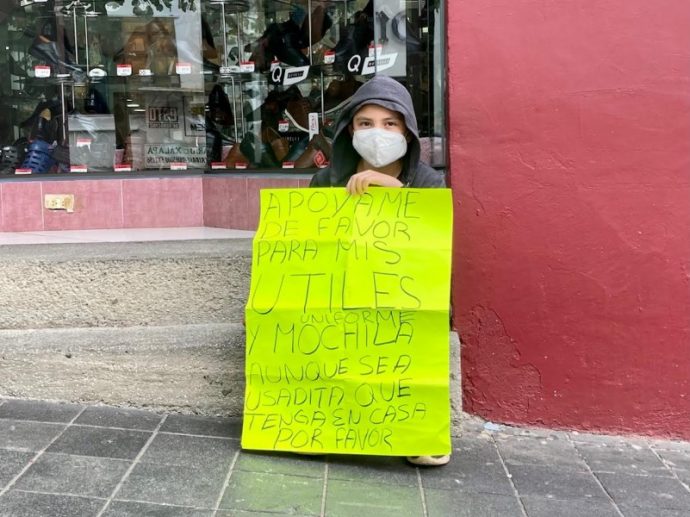 APOYAME
DE FAVOR
PARA MIS
UTILES
UNIFORME
Y MOCHILA
AUNQUE SEA
USADITA QUE
TENGA EN CASA
POR FAVOR